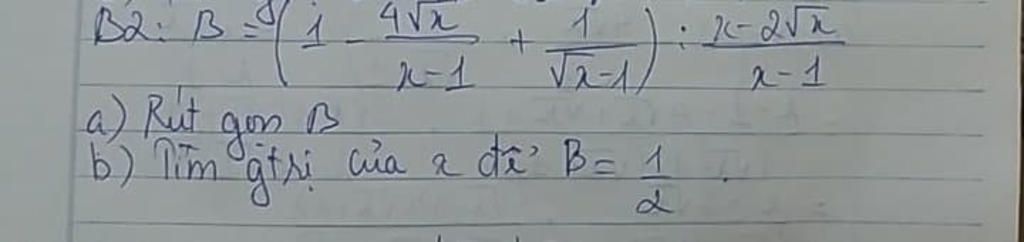 B2: B = (1 - 4√x / x-1 + 1 / √x-1) : x-2√x / x-1
a) Rút gọn B
b) Tìm gtrị của x để B = 1/2.